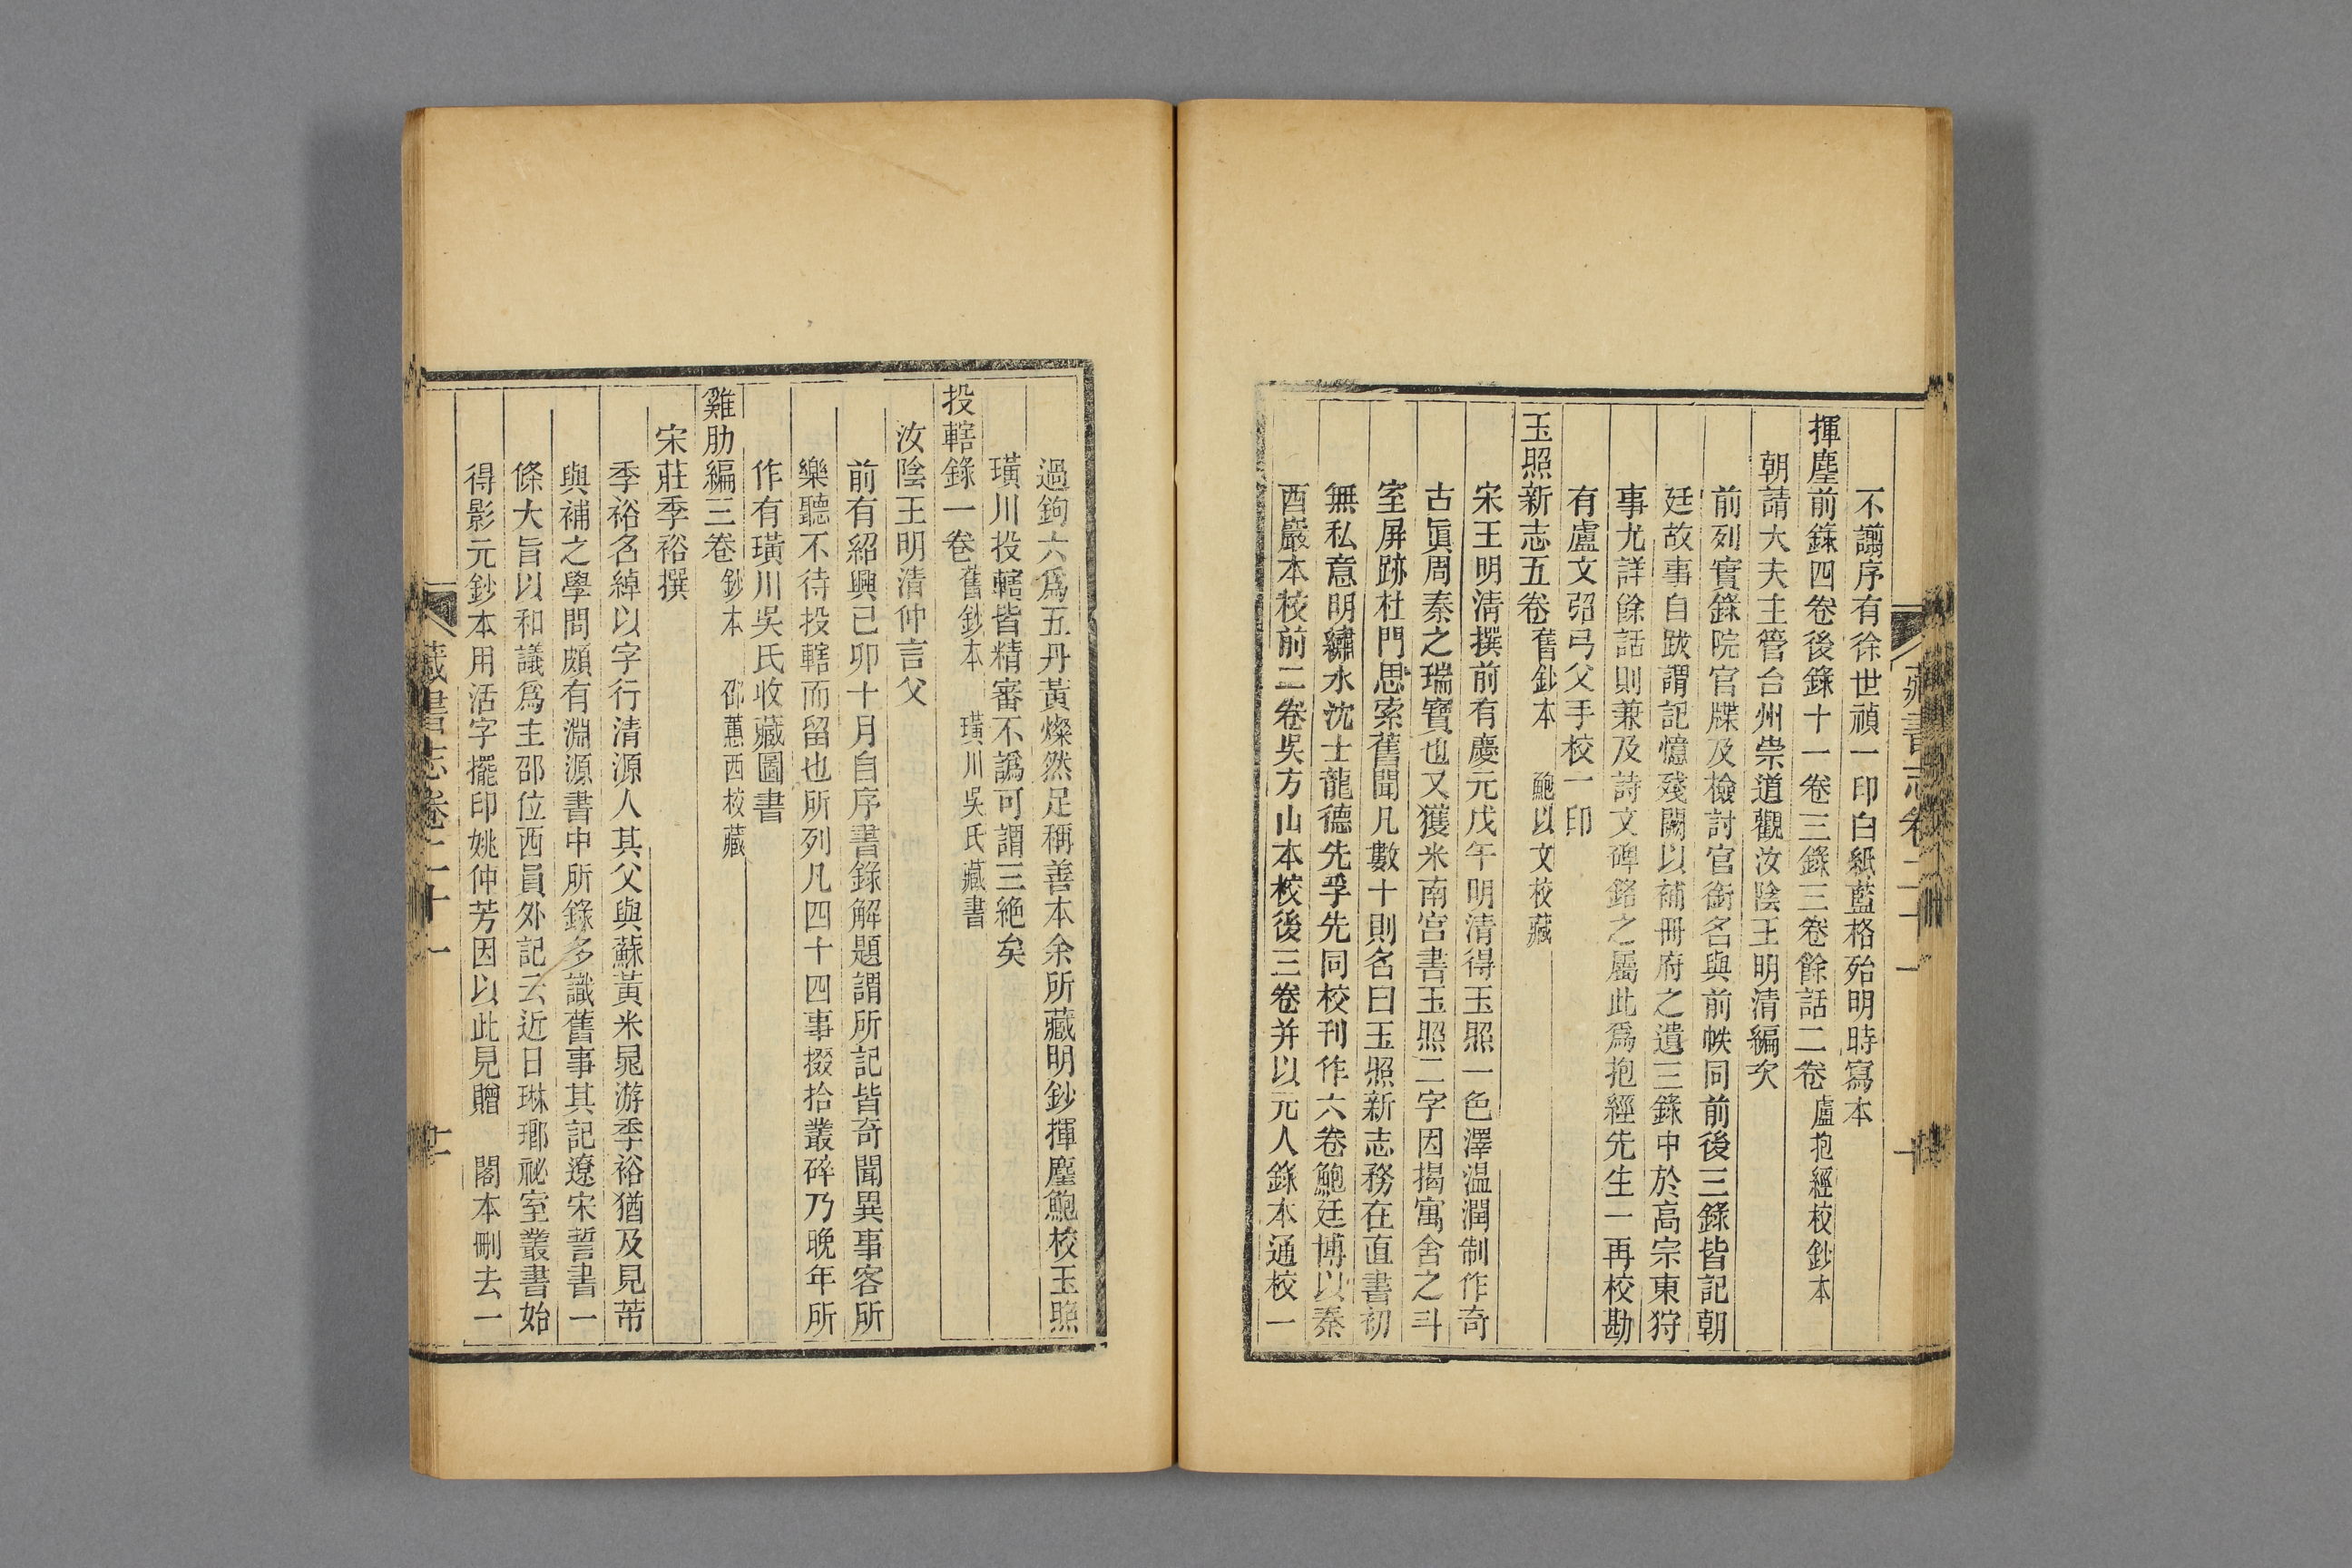 不謭序有徐世禎一印白紙藍格殆明時寫本
揮麈前錄四卷後錄十一卷三錄三卷餘話二卷盧抱經校鈔本
朝請大夫主管台州崇道觀汝陰王明清編次
前列實錄院官牒及檢討官銜名與前帙同前後三錄皆記朝
廷故事自跋謂記憶殘闕以補冊府之遺三錄中於高宗東狩
事尤詳餘話則兼及詩文碑銘之屬此爲抱經先生一再校勘
有盧文弨弓父手校一印
玉照新志五卷舊鈔本 鮑以文校藏
宋王明清撰前有慶元戊午明清得玉照一色澤温潤制作奇
古眞周秦之瑞寶也又獲米南宮書玉照二字因揭寓舍之斗
室屏跡杜門思索舊聞凡數十則名曰玉照新志務在直書初
無私意明繡水沈士龍德先孚先同校刊作六卷鮑廷博以秦
酉巖本校前二卷吳方山本校後三卷并以元人錄本通校一
藏書志卷二十一
過鉤六爲五丹黃燦然足稱善本余所藏明鈔揮麈鮑校玉照
璜川投轄皆精審不譌可謂三絶矣
投轄錄一卷舊鈔本 璜川吳氏藏書
汝陰王明清仲言父
前有紹興己卯十月自序書錄解題謂所記皆奇聞異事客所
樂聽不待投轄而留也所列凡四十四事掇拾叢碎乃晚年所
作有璜川吳氏收藏圖書
雞肋編三卷鈔本 邵蕙西校藏
宋莊季裕撰
季裕名綽以字行清源人其父與蘇黃米晁游季裕猶及見芾
與補之學問頗有淵源書中所錄多識舊事其記遼宋誓書一
條大旨以和議爲主邵位西員外記云近日琳瑯祕室叢書始
得影元鈔本用活字擺印姚仲芳因以此見贈 閣本刪去一
藏書志卷二十一